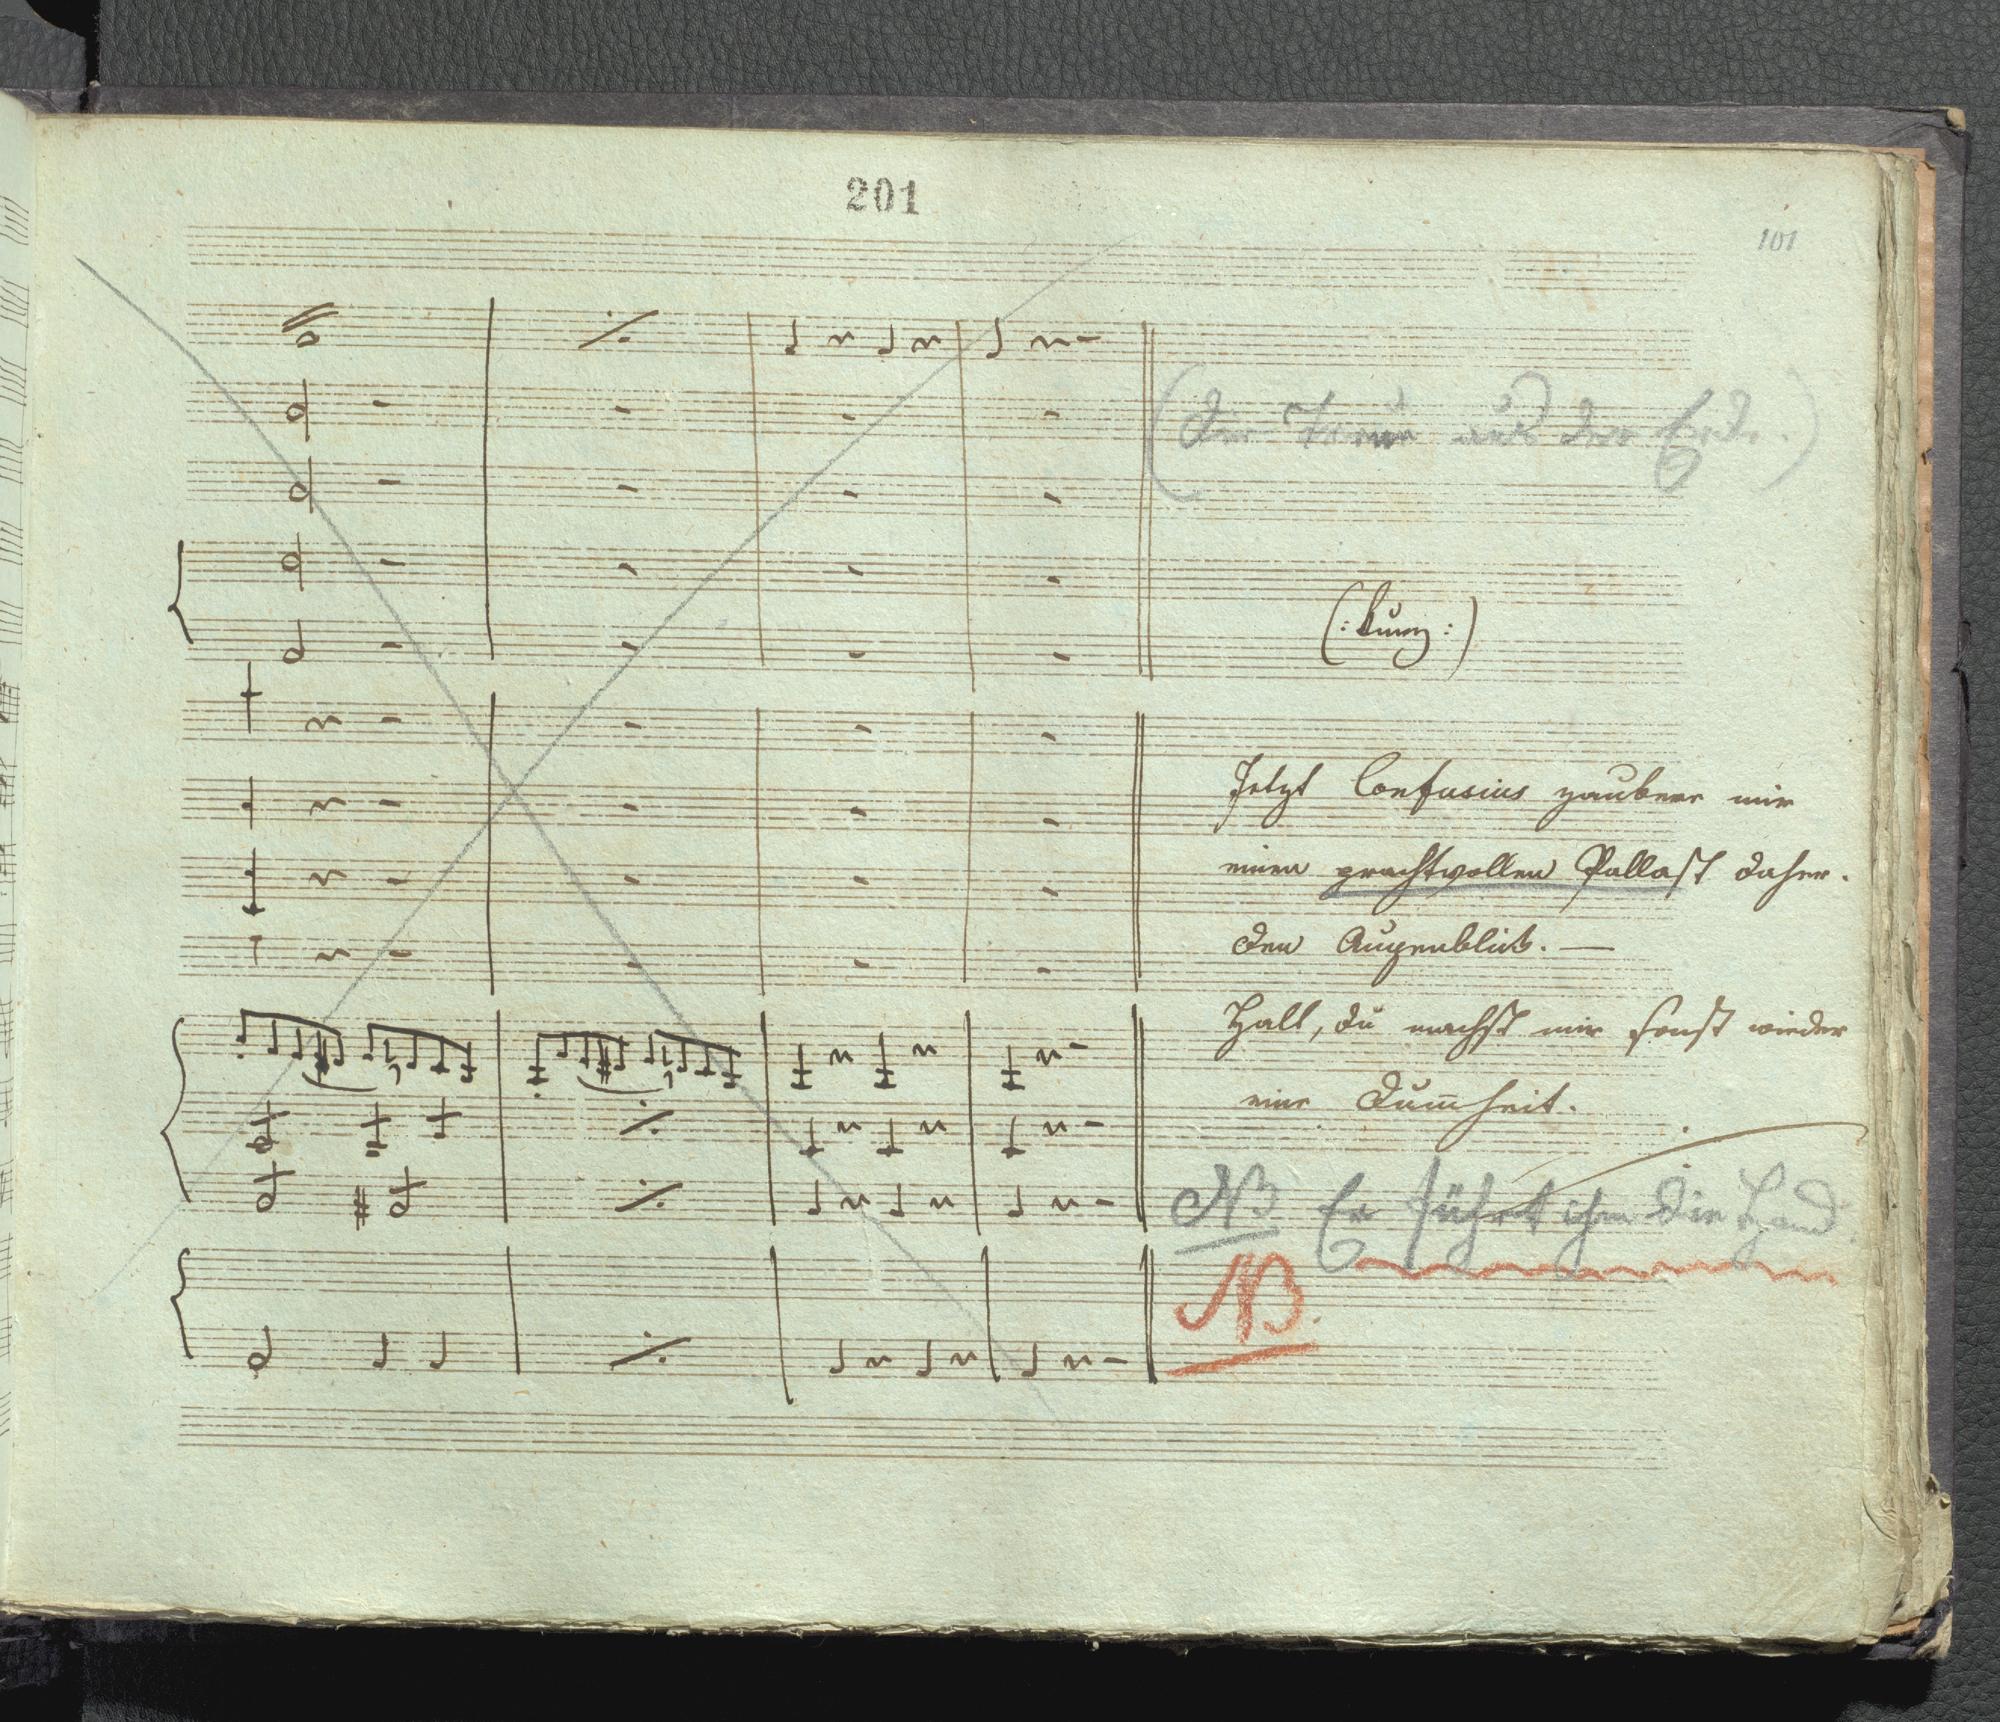 201
101
(Die Treue aus der Erde.)
(: kurz :)
Jetzt Confusius zaubere mir
einen prachtvollen Pallast daher.
den Augenblick. —
Halt, du machst mir sonst wieder
eine Dum̅heit.
NB Er führt ihm die Hand
NB.